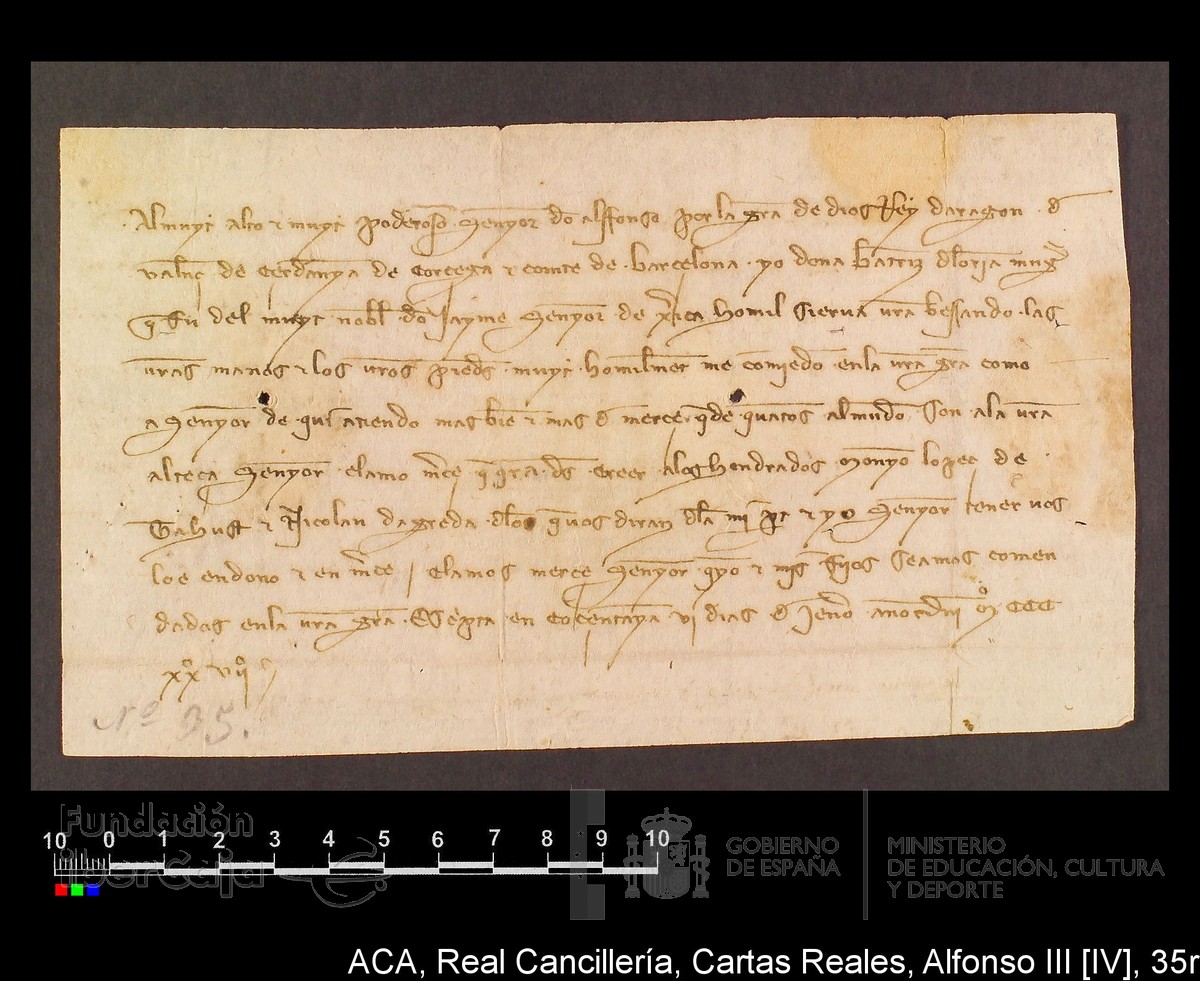 Al muyt alto ⁊ muyt poderoso Senyor do alffonso por la gra de dios Rey daragon . d
valenc de Cerdanya de Corcega ⁊ comte de Barcelona . yo dona Batriz dloria mug
q fu del muyt nobl do Jayme Senyor de xica homil sierva vra bessando las
vras manos ⁊ los vros pieds muyt homilmet me comiedo en la vra gra como
a Senyor de qui atiendo mas bie ⁊ mas d merce q de quatos al mudo son a la vra
alteca Senyor clamo mce q qra ds creer a los hondrados nonyo lopec de
Tahust ⁊ Nicolau dagreda dlo q vos diran dla mi pt ⁊ yo Senyor tener vos
lo e en dono ⁊ en mce / clamos merce Senyor q yo ⁊ mis fijos seamos comen
dados en la vra gra . Escpta en Cocentayna vi dias d Jenro anno dni mº CCC
xxº viiº
Nº 35.
Fundación
iberCaja
10 0 1 2 3 4 5 6 7 8 9 10
GOBIERNO
DE ESPAÑA
MINISTERIO
DE EDUCACIÓN, CULTURA
Y DEPORTE
ACA, Real Cancillería, Cartas Reales, Alfonso III [IV], 35r